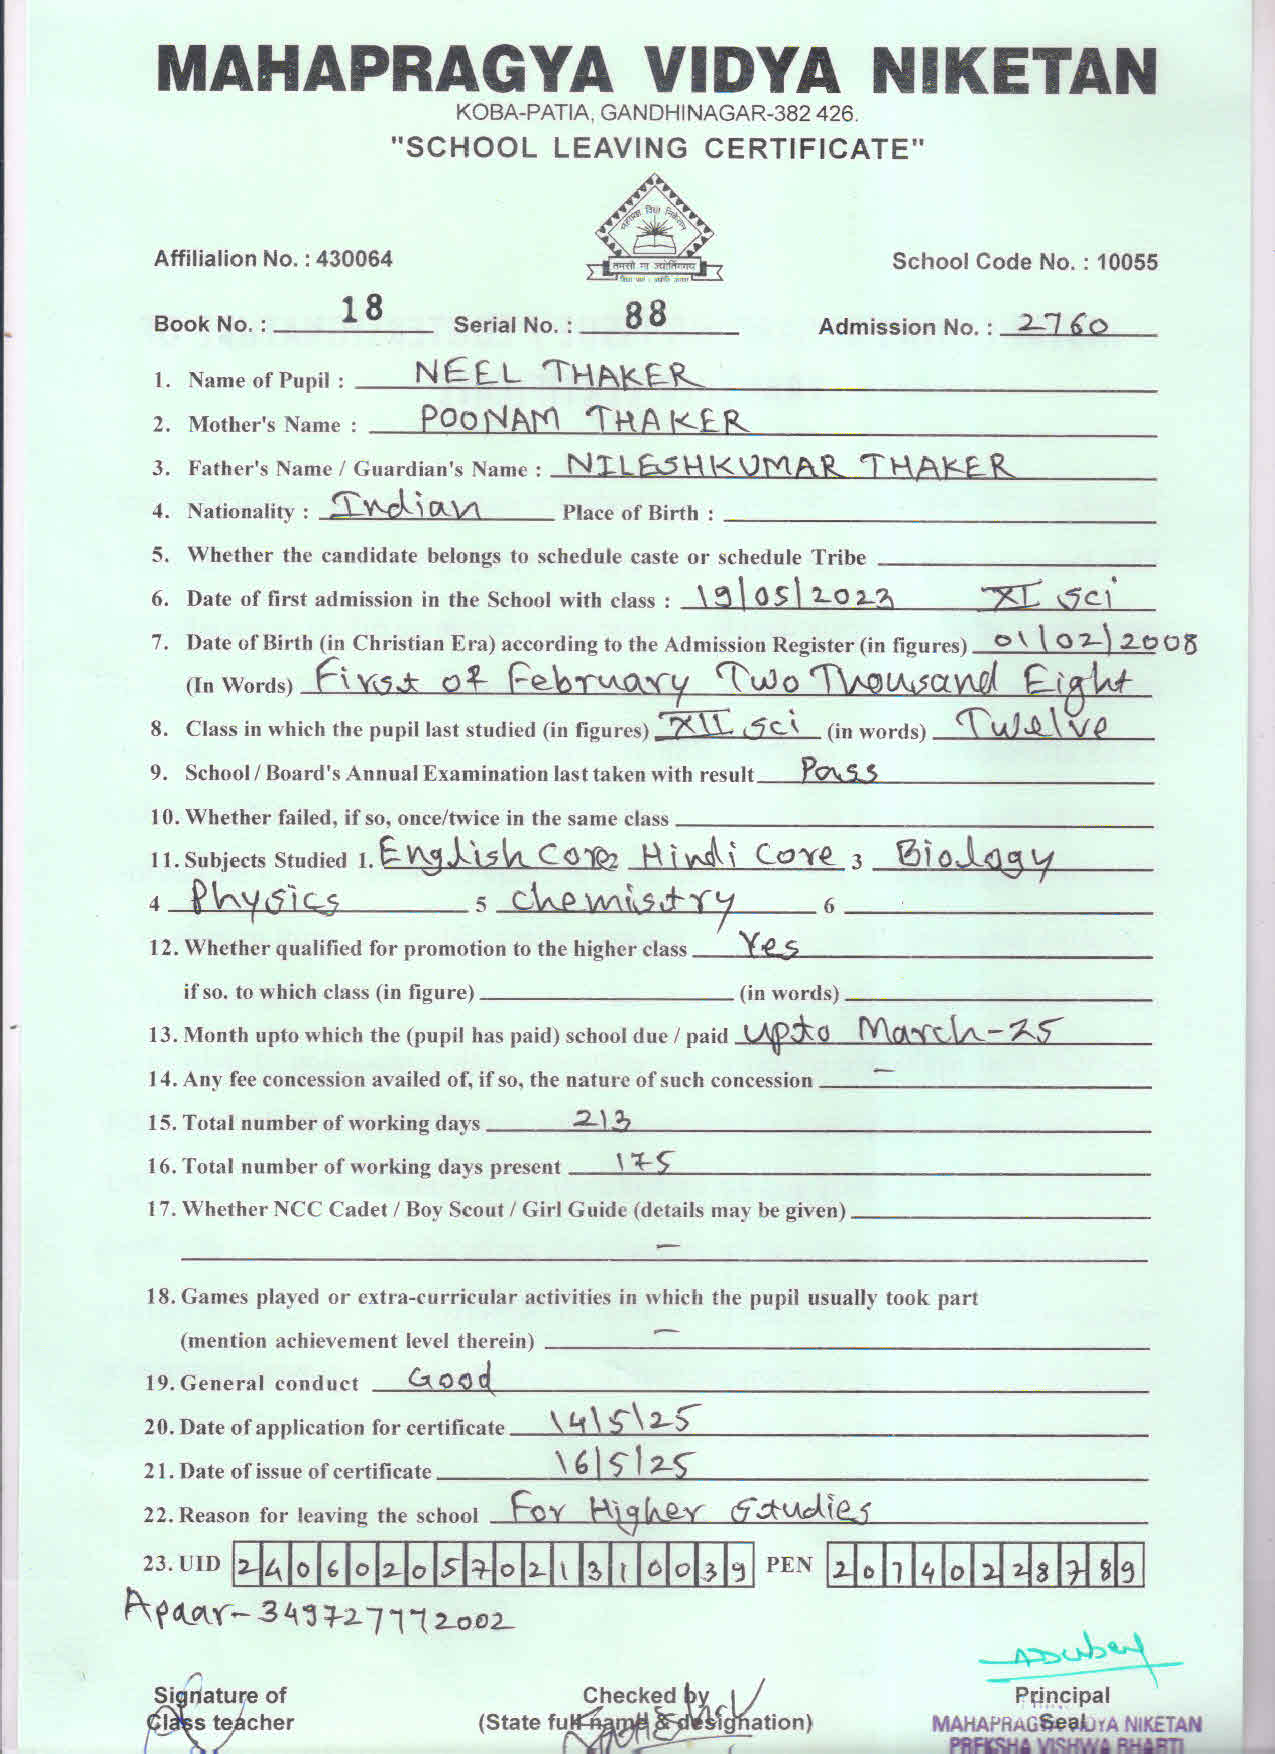 MAHAPRAGYA VIDYA NIKETAN
KOBA-PATIA, GANDHINAGAR-382 426.
"SCHOOL LEAVING CERTIFICATE"
महाप्रज्ञ विद्या निकेतन
तमसो मा ज्योतिर्गमय
Affilialion No. : 430064 School Code No. : 10055
Book No. : 18 Serial No. : 88 Admission No. : 2760
1. Name of Pupil : NEEL THAKER
2. Mother's Name : POONAM THAKER
3. Father's Name / Guardian's Name : NILESHKUMAR THAKER
4. Nationality : Indian Place of Birth :
5. Whether the candidate belongs to schedule caste or schedule Tribe
6. Date of first admission in the School with class : 19/05/2023 XI sci
7. Date of Birth (in Christian Era) according to the Admission Register (in figures) 01/02/2008
(In Words) First of February Two Thousand Eight
8. Class in which the pupil last studied (in figures) XII sci (in words) Twelve
9. School / Board's Annual Examination last taken with result Pass
10. Whether failed, if so, once/twice in the same class
11. Subjects Studied 1. English Core 2 Hindi Core 3 Biology
4 Physics 5 Chemistry 6
12. Whether qualified for promotion to the higher class Yes
if so. to which class (in figure) (in words)
13. Month upto which the (pupil has paid) school due / paid upto March-25
14. Any fee concession availed of, if so, the nature of such concession –
15. Total number of working days 213
16. Total number of working days present 175
17. Whether NCC Cadet / Boy Scout / Girl Guide (details may be given)
–
18. Games played or extra-curricular activities in which the pupil usually took part
(mention achievement level therein) –
19. General conduct Good
20. Date of application for certificate 14/5/25
21. Date of issue of certificate 16/5/25
22. Reason for leaving the school For Higher Studies
23. UID 240602057021310039 PEN 20740228789
Apaar-349727772002
Signature of Checked by Principal
Class teacher (State full name & designation) Seal
MAHAPRAGYA VIDYA NIKETAN
PREKSHA VISHWA BHARTI